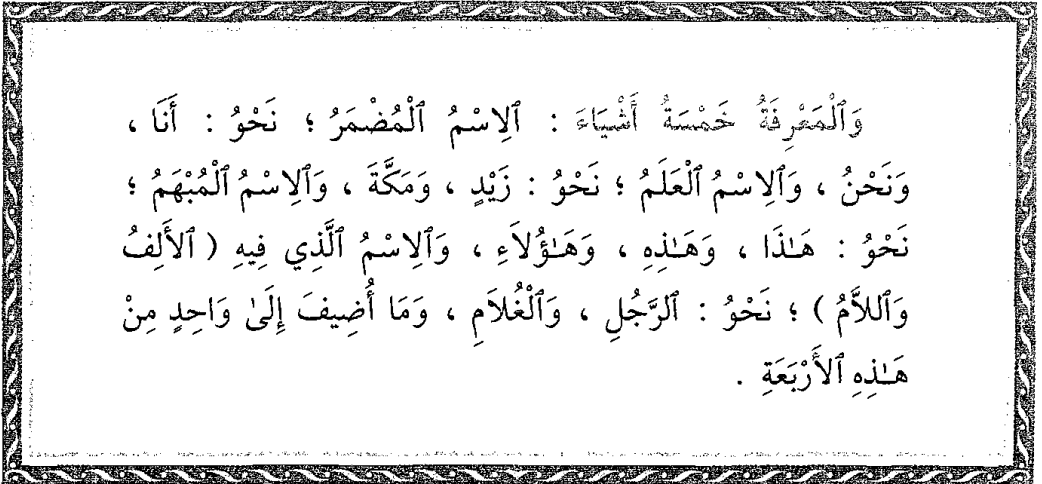 وَٱلْمَعْرِفَةُ خَمْسَةُ أَشْيَاءَ : ٱلِاسْمُ ٱلْمُضْمَرُ ؛ نَحْوُ : أَنَا ،
وَنَحْنُ ، وَٱلِاسْمُ ٱلْعَلَمُ ؛ نَحْوُ : زَيْدٍ ، وَمَكَّةَ ، وَٱلِاسْمُ ٱلْمُبْهَمُ ؛
نَحْوُ : هَـٰذَا ، وَهَـٰذِهِ ، وَهَـٰؤُلَاءِ ، وَٱلِاسْمُ ٱلَّذِي فِيهِ ( ٱلْأَلِفُ
وَٱللاَّمُ ) ؛ نَحْوُ : ٱلرَّجُلِ ، وَٱلْغُلاَمِ ، وَمَا أُضِيفَ إِلَىٰ وَاحِدٍ مِنْ
هَـٰذِهِ ٱلأَرْبَعَةِ .